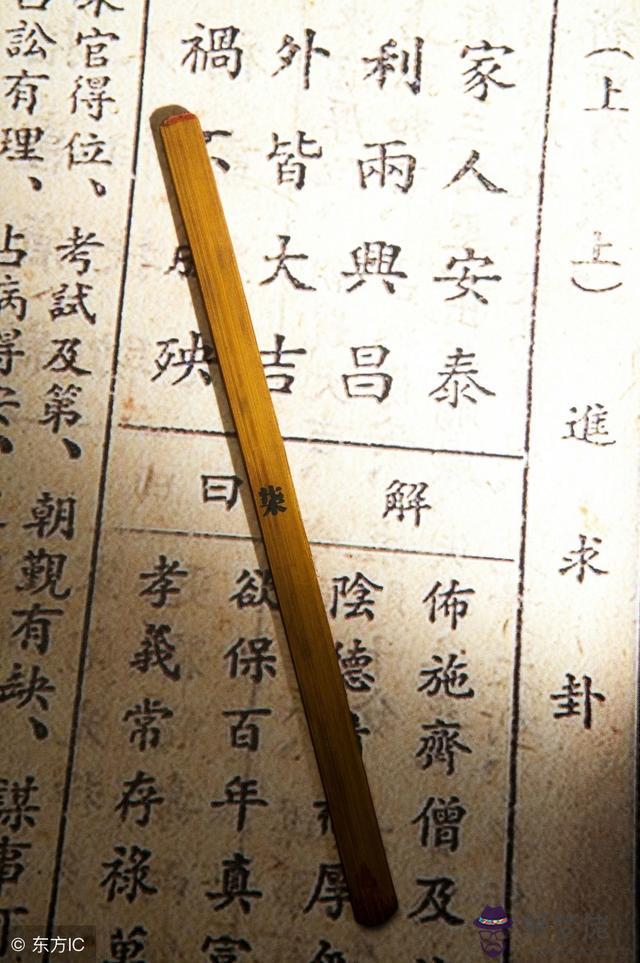 （上上）進求卦
家人安泰
利兩興昌
外皆大吉
禍不成殃
解曰
佈施齊僧及
陰德 厚
欲保百年真富
孝義常存祿萬
官得位、考試及第、朝觀有缺、謀事
訟有理、占病得安、
柒
© 东方IC